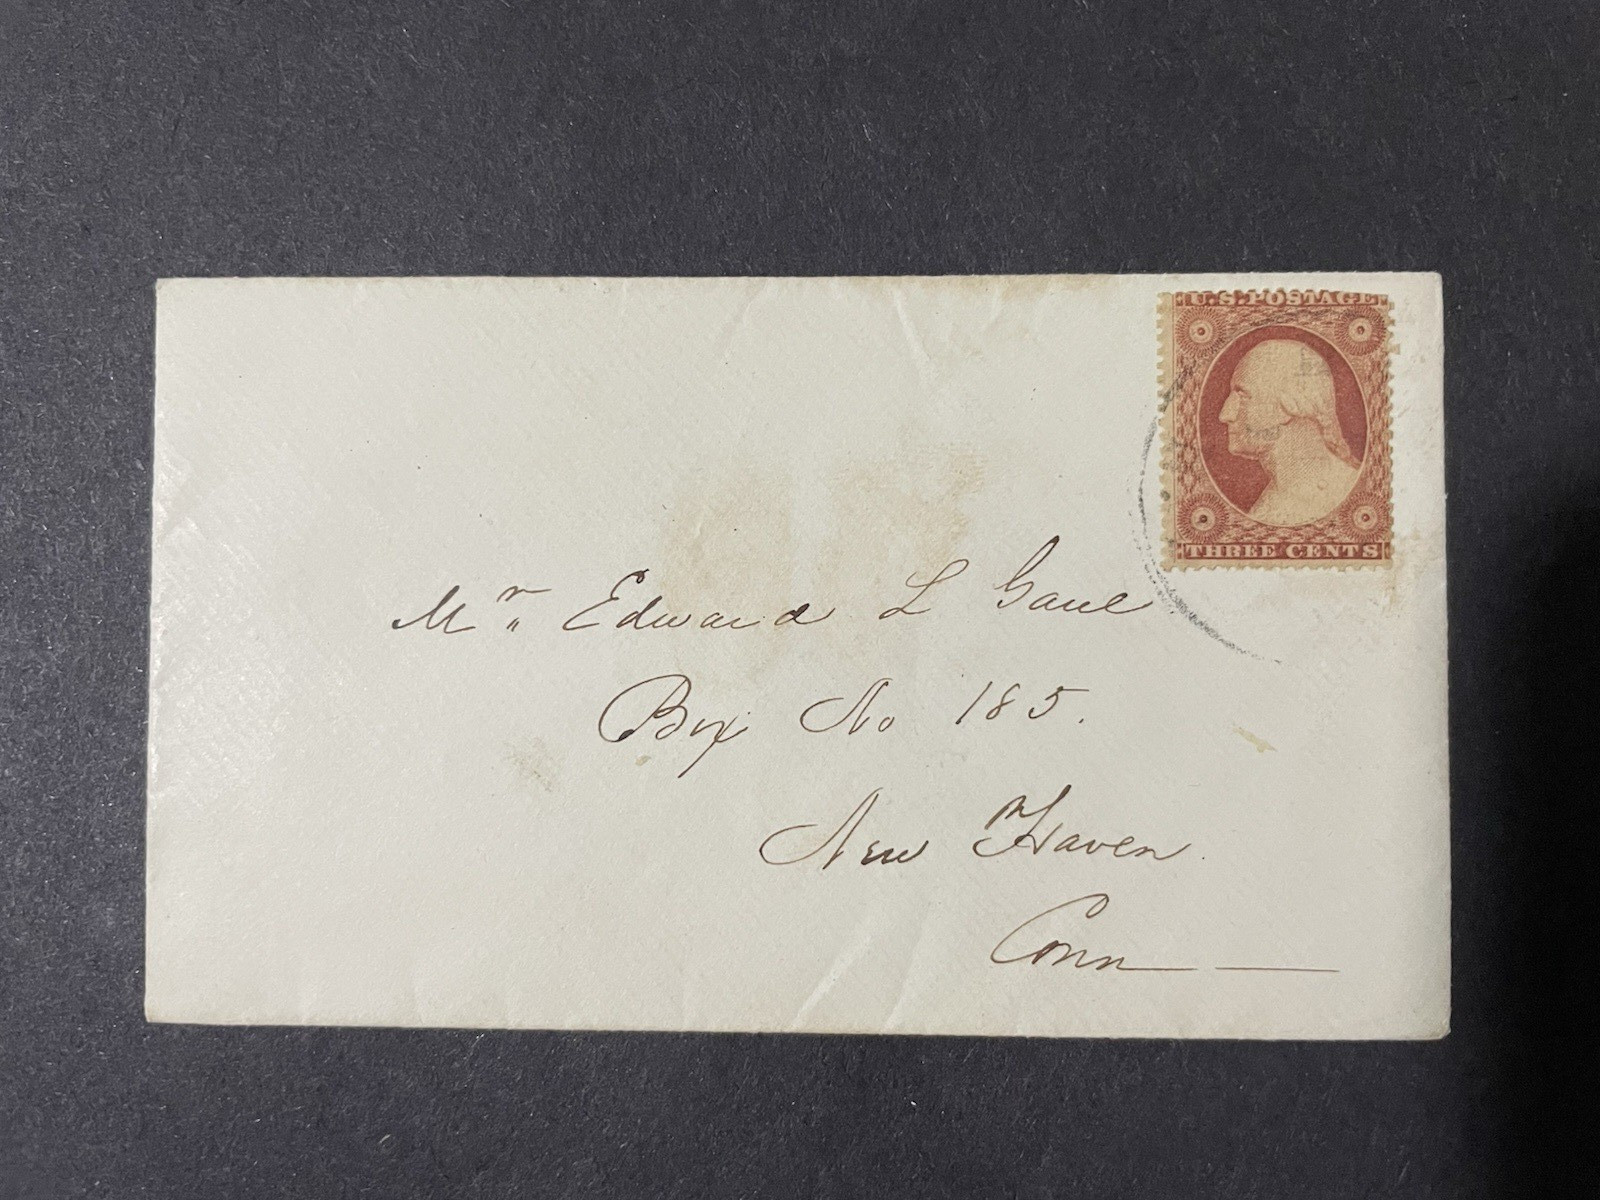 U.S. POSTAGE
THREE CENTS
Mr. Edward L Gaul
Box No 185.
New Haven.
Conn